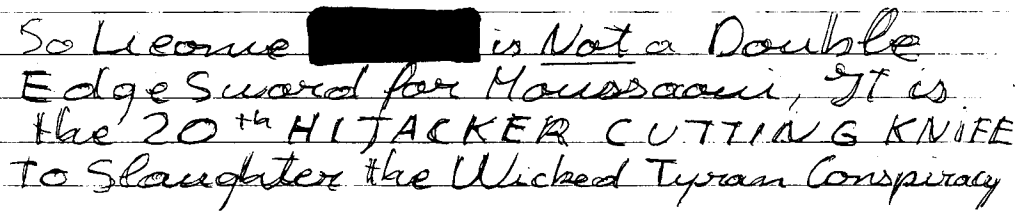 So Leonie is Not a Double
Edge Sword for Moussaoui, It is
the 20th HIJACKER CUTTING KNIFE
To Slaughter the Wicked Tyran Conspiracy